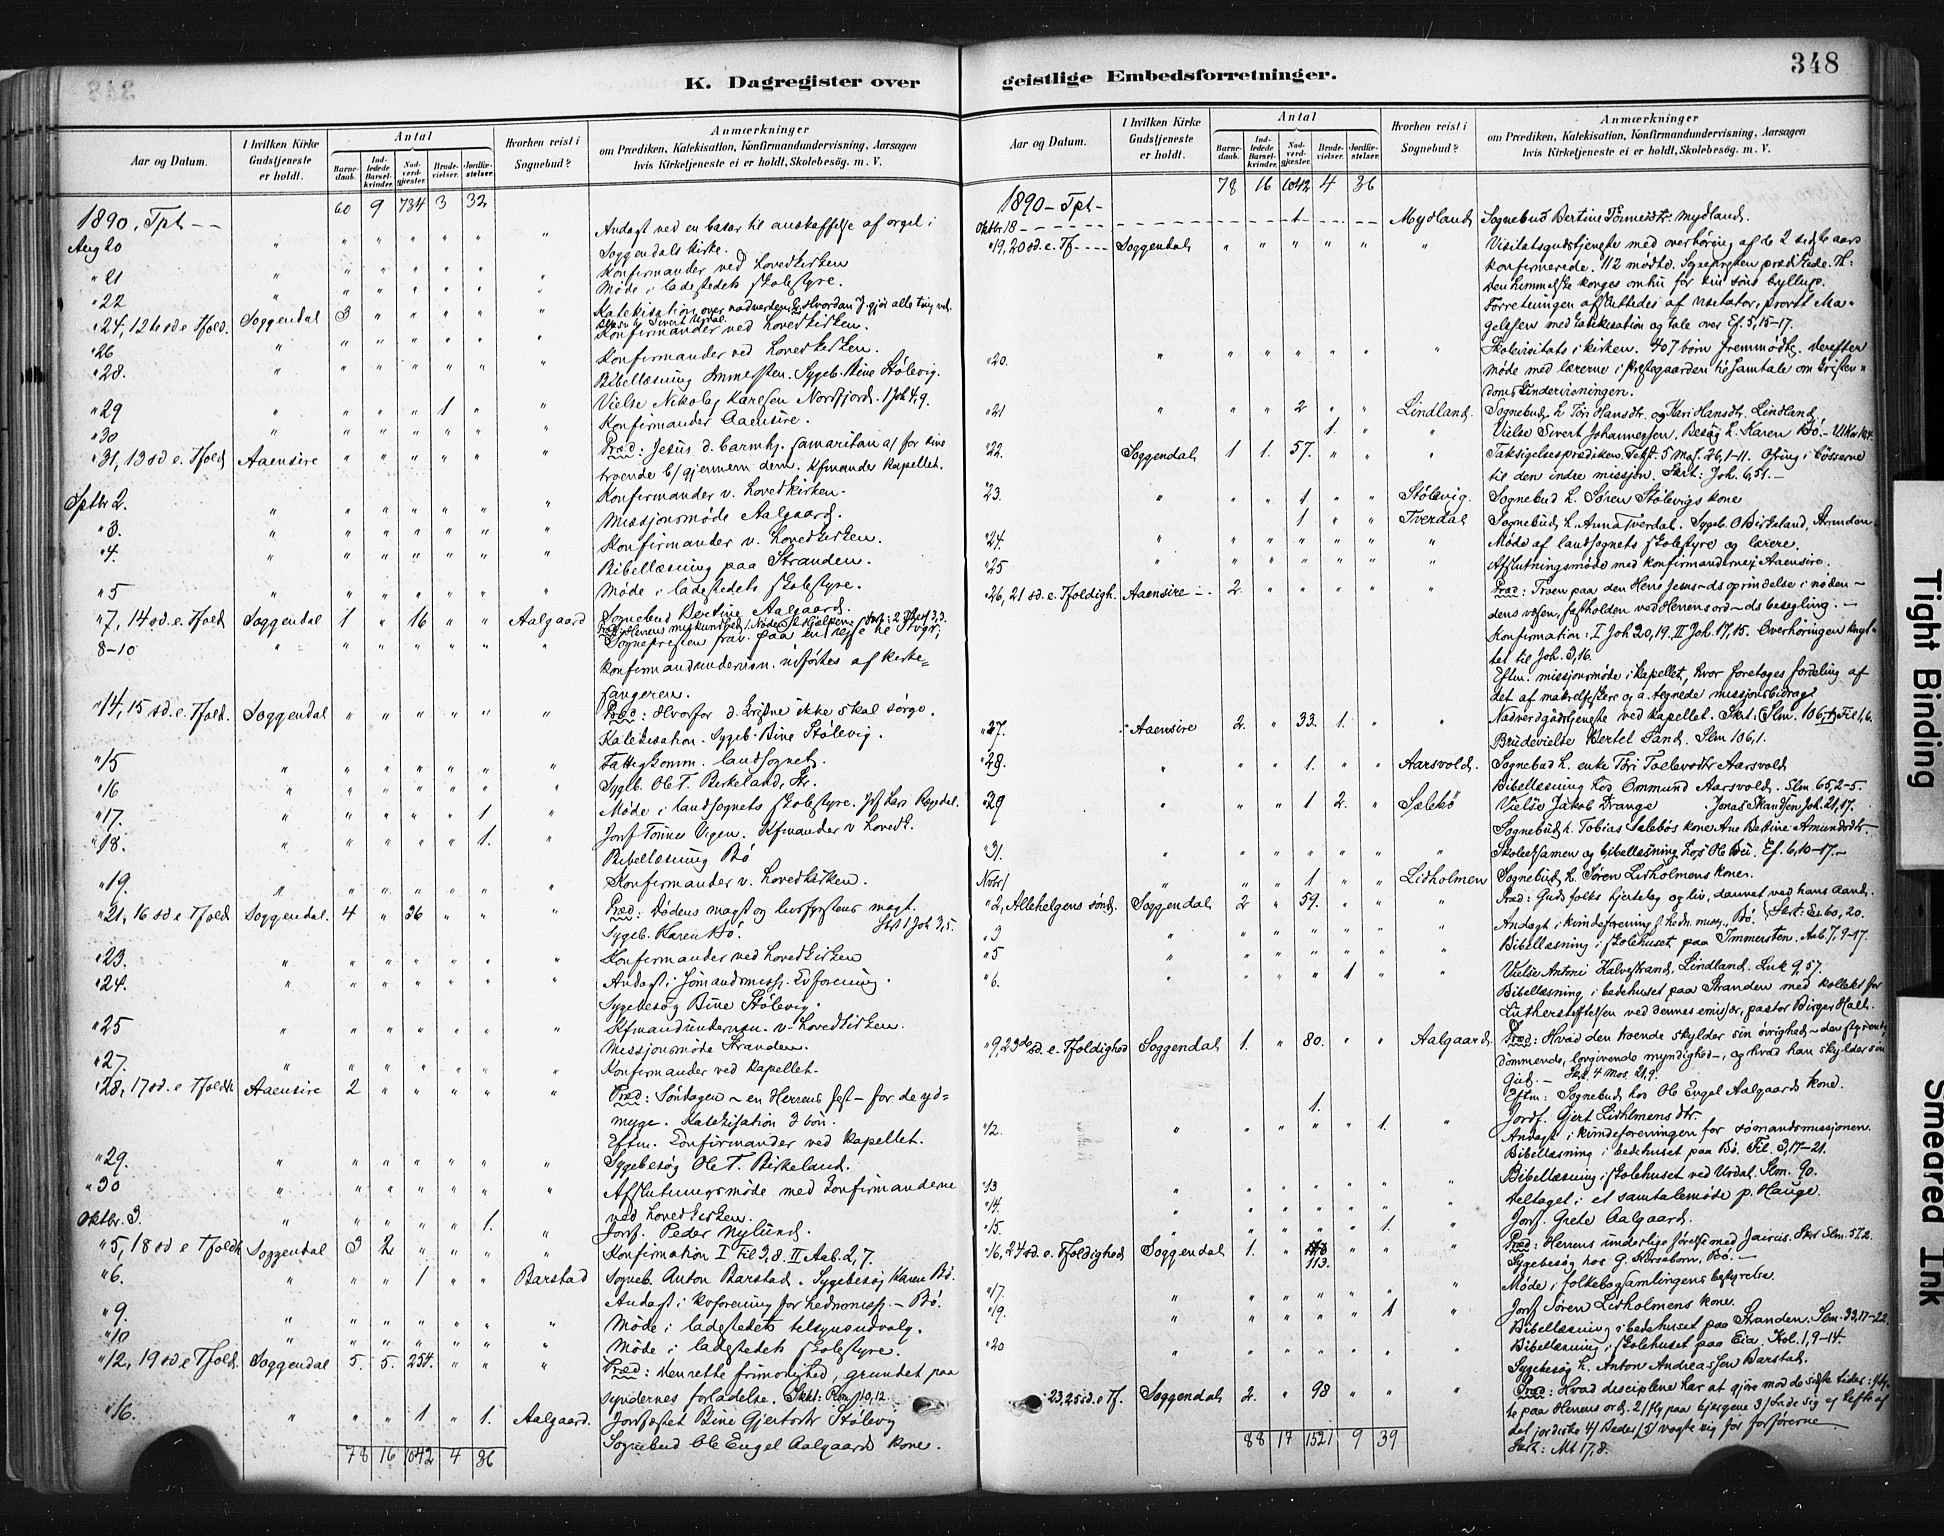 348
K. Dagregister over
Aar og Datum.
I hvilken Kirke Gudstjeneste er holdt.
Antal
Barnedaab.
Indledede Barselkvinder.
Nadverdgjæster.
Brudevielser.
Jordfæstelser.
Hvorhen reist i Sognebud?
Anmærkninger
om Prædiken, Katekisation, Konfirmandundervisning, Aarsagen
hvis Kirketjeneste ei er holdt, Skolebesøg. m. V.
1890, Tpt -- 60 9 734 3 32
Aug 20 Andagt ved en basar til anskaffelse af orgel i
Soggendals kirke.
"21 Konfirmander ved hovedkirken
"22 Møde i ladestedets skolestyre.
"24, 12te sd e Tfold. Soggendal 3 Katekisation over nadverden
"26 Konfirmander ved hovedkirken.
"28. Konfirmander ved hovedkirken.
Bibellæsning Immersten. Sygeb. Bine Stølevig.
"29 1 Vielse Nikolay Karlsen Nordfjord. 1 Joh 4,9.
"30 Konfirmander Aaensire.
"31, 13 sd e. Tfold Aaensire Præd: Jesus d. barmhj. samaritan a/ for sine
troende b/ gjennem dem. Kfmander kapellet.
Sptbr 2. Konfirmander v. hovedkirken.
"3. Missjonsmøde Aalgaard.
"4. Konfirmander v. hovedkirken.
Bibellæsning paa Stranden.
"5 Møde i ladestedets skolestyre.
"7, 14 sd e. Tfold Soggendal 1 " 16 Aalgaard Sognebud Bertine Aalgaard.
8-10 Sognepresten frav. paa en rejse til Stvgr;
konfirmandundervisn. udførtes af kirke=
sangeren.
"14, 15 sd. e. Tfold. Soggendal Præd: Hvorfor d. kristne ikke skal sørge.
Katekisation. Sygeb. Bine Stølevig.
"15 Fattigkomm. landsognet.
"16 Sygb. Ole T. Birkeland, Hr.
"17. 1 Møde i landsognets skolestyre.
"18. 1. Jorf Tønnes Vigen. Kfmander v hovedk.
Bibellæsning Bø
"19. Konfirmander v. hovedkirken.
"21, 16 sd e Tfold Soggendal. 4 " 36 Præd: Dødens magt og livsfyrstens magt.
Sygeb. Karen Bø. Skst 1 Joh 3,5.
"23. Konfirmander ved hovedkirken
"24. Andagt i sømandsmissj. kvforening.
Sygebesøg Bine Stølevig.
"25 Kfmandundervisn. v. hovedkirken.
Missjonsmøde Stranden.
"27. Konfirmander ved kapellet.
"28, 17 sd. e Tfoldh Aaensire 2 Præd: Søndagen – en Herrens fest – for de yd=
myge. Katekisation 3 bøn.
Eftm. Konfirmander ved kapellet.
"29. Sygebesøg Ole T. Birkeland.
"30 Afslutningsmøde med konfirmanderne
ved hovedkirken.
Oktbr. 3. 1. Jorf. Peder Nylund.
"5, 18 sd e Tfoldh Soggendal 3 2 Konfirmation I Fil 3,8. II Aab. 2,7.
"6. 1 Barstad Sogneb. Anton Barstad. Sygebesøg Karen Bø.
Andagt i kvforening for hednomissj. – Bø.
"9. Møde i ladestedets tilsynsudvalg.
"10 Møde i ladestedets skolestyre.
"12, 19 sd. e Tfold. Soggendal 5. 5. 254. Præd: Den rette frimodighed, grundet paa
syndernes forladelse. Skst: Rom 10,12
"16. 1 " 1. Aalgaard. Jordfæstet Bine Gjertsdtr Stølevig
Sognebud Ole Engel Aalgaards kone.
78 16 1042 4 36
geistlige Embedsforretninger.
348
Aar og Datum.
I hvilken Kirke Gudstjeneste er holdt.
Antal
Barnedaab.
Indledede Barselkvinder.
Nadverdgjæster.
Brudevielser.
Jordfæstelser.
Hvorhen reist i Sognebud?
Anmærkninger
om Prædiken, Katekisation, Konfirmandundervisning, Aarsagen
hvis Kirketjeneste ei er holdt, Skolebesøg. m. V.
1890 – Tpt – 78 16 1042 4 36
Oktbr 18 1 Mydland Sognebud Bertine Tønnesdtr. Mydland.
"19, 20 sd. e. Tf. Soggendal Visitatsgudstjeneste med overhøring af de 2 sidste aars
konfirmerede. 112 mødte. Sognepresten prædikede. Th:
Den himmelske konges omhu for sin søns bryllup.
Forretningen afsluttedes af visitator, provst Ma-
gelssen med katekisation og tale over Ef. 5, 15-17.
"20. Skolevisitats i kirken. 407 børn fremmødte. derefter
møde med lærerne i prestegaarden til samtale om kristen=
domskundervisningen.
"21 2 Lindland. Sognebud h Tøri Hansdtr. og Kari Hansdtr. Lindland.
1 Vielse Sivert Johannessen. Besøg h. Karen Bø.
"22. Soggendal 1 1. 57. Taksigelsesprædiken. Tekst: 5 Mos. 26, 1-11. Ofring i bøsserne
til den indre missjon. Skrt: Joh. 6,51.
"23. 1 Stølevig. Sognebud h. Søren Stølevigs kone
1 Tverdal Sognebud h. Anna Tverdal. Sygeb. O Birkeland,
"24. Møde af landsognets skolestyre og lærere.
"25 Afslutningsmøde med konfirmanderne i Aaensire.
"26, 21 sd. e. Tfoldigh. Aaensire 2. Præd: Troen paa den Herre Jesus – ds oprindelse i nøden –
dens væsen, fastholden ved Herrens ord – ds besegling. –
Konfirmation: I Joh 20,19. II Joh. 17,15. Overhøringen knyt=
tet til Joh. 3,16.
Eftm. missjonsmøde i kapellet, hvor foretoges fordeling af
det af makrelfiskere og a. tegnede missjonsbidrag.
"27. Aaensire 2. " 33. 1. Nadverdgudstjeneste ved kapellet.
Brudevielse Bertel Sand. Slm 106,1.
"28. 1. Aarsvold. Sognebud h. enke Tøri Toelevsdtr Aarsvold
Bibellæsning hos Ommund Aarsvold. Slm. 65, 2-5.
"29 1 2. Salebø Vielse Jakob Drange Jonas Skandsen Joh. 21,17.
Sognebud h. Tobias Salebøs kone Ane Bertine Amundsdtr.
"31. Skoleeksamen og bibellæsning hos Ole Bu. Ef. 6,10-17.
Nvbr 1 1 Lidholmen Sognebud h. Søren Lidholmens kone.
"2, Allehelgens sønd. Soggendal 2 " 59. Præd: Guds folks hjertelag og liv, dannet ved hans aand.
"3 Andagt i kvindeforening f. hedn. miss., Bø. Skrt: Es. 60, 20.
"5 Bibellæsning i skolehuset paa Immersten. Aab. 7, 9-17.
"6. 1 Vielse Antoni Kalvestrand, Lindland. Luk 9,57.
Bibellæsning i bedehuset paa Stranden med kollekt for
Lutherstiftelsen ved dennes emissær, pastor Birger Hall.
"9, 23de sd. e. Tfoldighed Soggendal 1. " 80. Aalgaard. Præd: Hvad den troende skylder sin øvrighed – den styrende
dømmende, lovgivende myndighed –, og hvad han skylder sin
Gud. – Skt. 4 Mos. 21,9.
1. Eftm: Sognebud hos Ole Engel Aalgaards kone.
"12. 1. Jordf. Gjert Lidholmens dtr.
Andagt i kvindeforeningen for sømandsmissjonen.
Bibellæsning i bedehuset paa Bø. Fil. 3, 17-21.
"13 Bibellæsning i skolehuset ved Urdal. Slm. 90.
"14. Deltaget i et samtalemøde p. Hauge.
"15. 1. Jorf. Grete Aalgaard.
"16, 24 sd. e. Tfoldighed Soggendal 1. 113. Præd: Herrens underlige førelse med Jairus. Skt Slm. 57,2.
Sygebesøg hos G. Kerseborn, Bø. –
"17. Møde i folkebogsamlingens bestyrelse.
"19. 1 Jorf Søren Lidholmens kone.
Bibellæsning i bedehuset paa Stranden. Slm. 33, 17-22.
"20 Bibellæsning i skolehuset paa Eia. Kol. 1, 9-14.
Sygebesøg h. Anton Andreassen Barstad.
"23, 25 sd. e Tf. Soggendal 2. " 98 Præd: Hvad disciplene har at gjøre mod de sidste tider: 1/ ly-
te paa Herrens ord. 2/ fly paa bjergene 3/ lade sig ej hefte af
det jordiske 4/ Beder/ 5/ vogte sig for forførerne
Skrt: Mt 17,8.
88 17 1521 9 39
Tight Binding
Smeared Ink